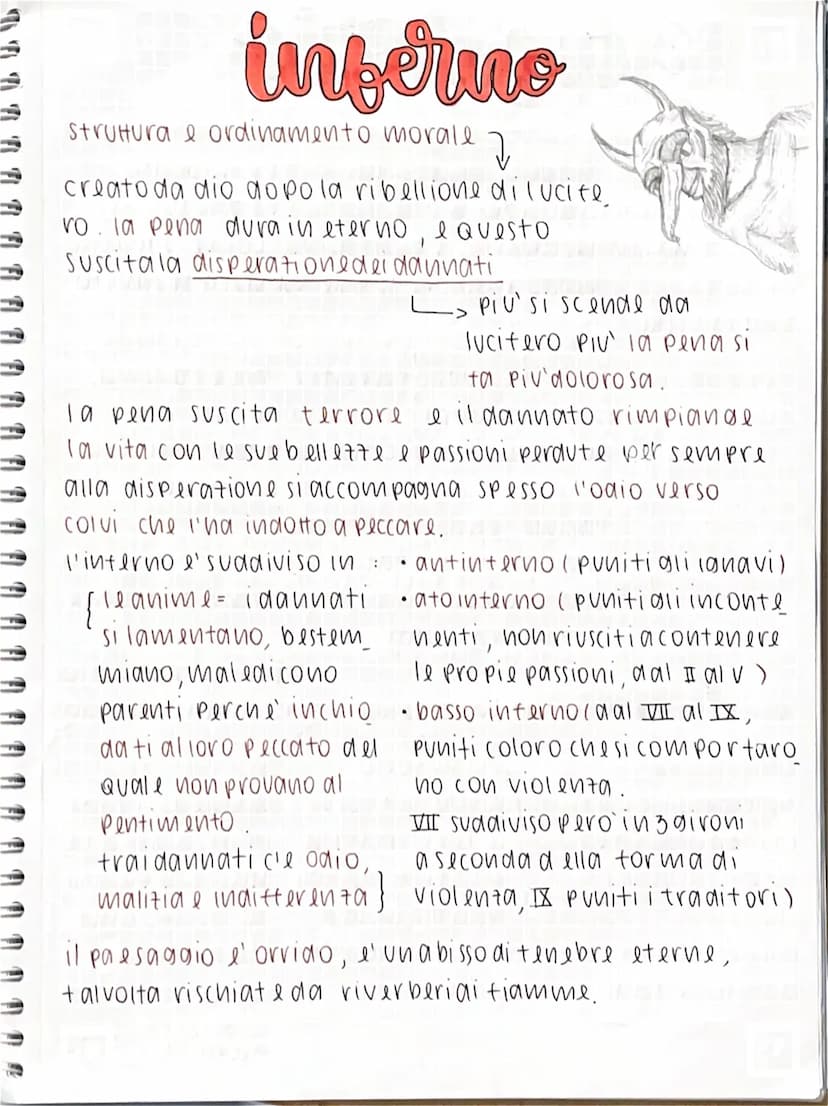 inferno
struttura e ordinamento morale
creato da dio dopo la ribellione di lucife_
ro. la pena dura in eterno, e questo
suscita la disperazione dei dannati
più si scende da
lucifero più la pena si
fa più dolorosa.
la pena suscita terrore e il dannato rimpiange
la vita con le sue bellezze e passioni perdute per sempre
alla disperazione si accompagna spesso l'odio verso
colui che l'ha indotto a peccare.
l'inferno e' suddiviso in :
• antinferno (puniti gli ignavi)
• ato inferno (puniti gli inconte_
nenti, non riusciti a contenere
le propie passioni, dal II al V)
• basso inferno (dal VII al IX,
puniti coloro che si comportaro_
no con violenza.
VII suddiviso però in 3 gironi
a seconda della forma di
violenza, IX puniti i traditori)
{ le anime = i dannati
si lamentano, bestem_
miano, maledicono
parenti perchè inchio_
dati al loro peccato del
quale non provano al
pentimento.
tra i dannati c'è odio,
malizia e indifferenza }
il paesaggio e' orrido, e' un abisso di tenebre eterne,
talvolta rischiate da riverberi di fiamme.